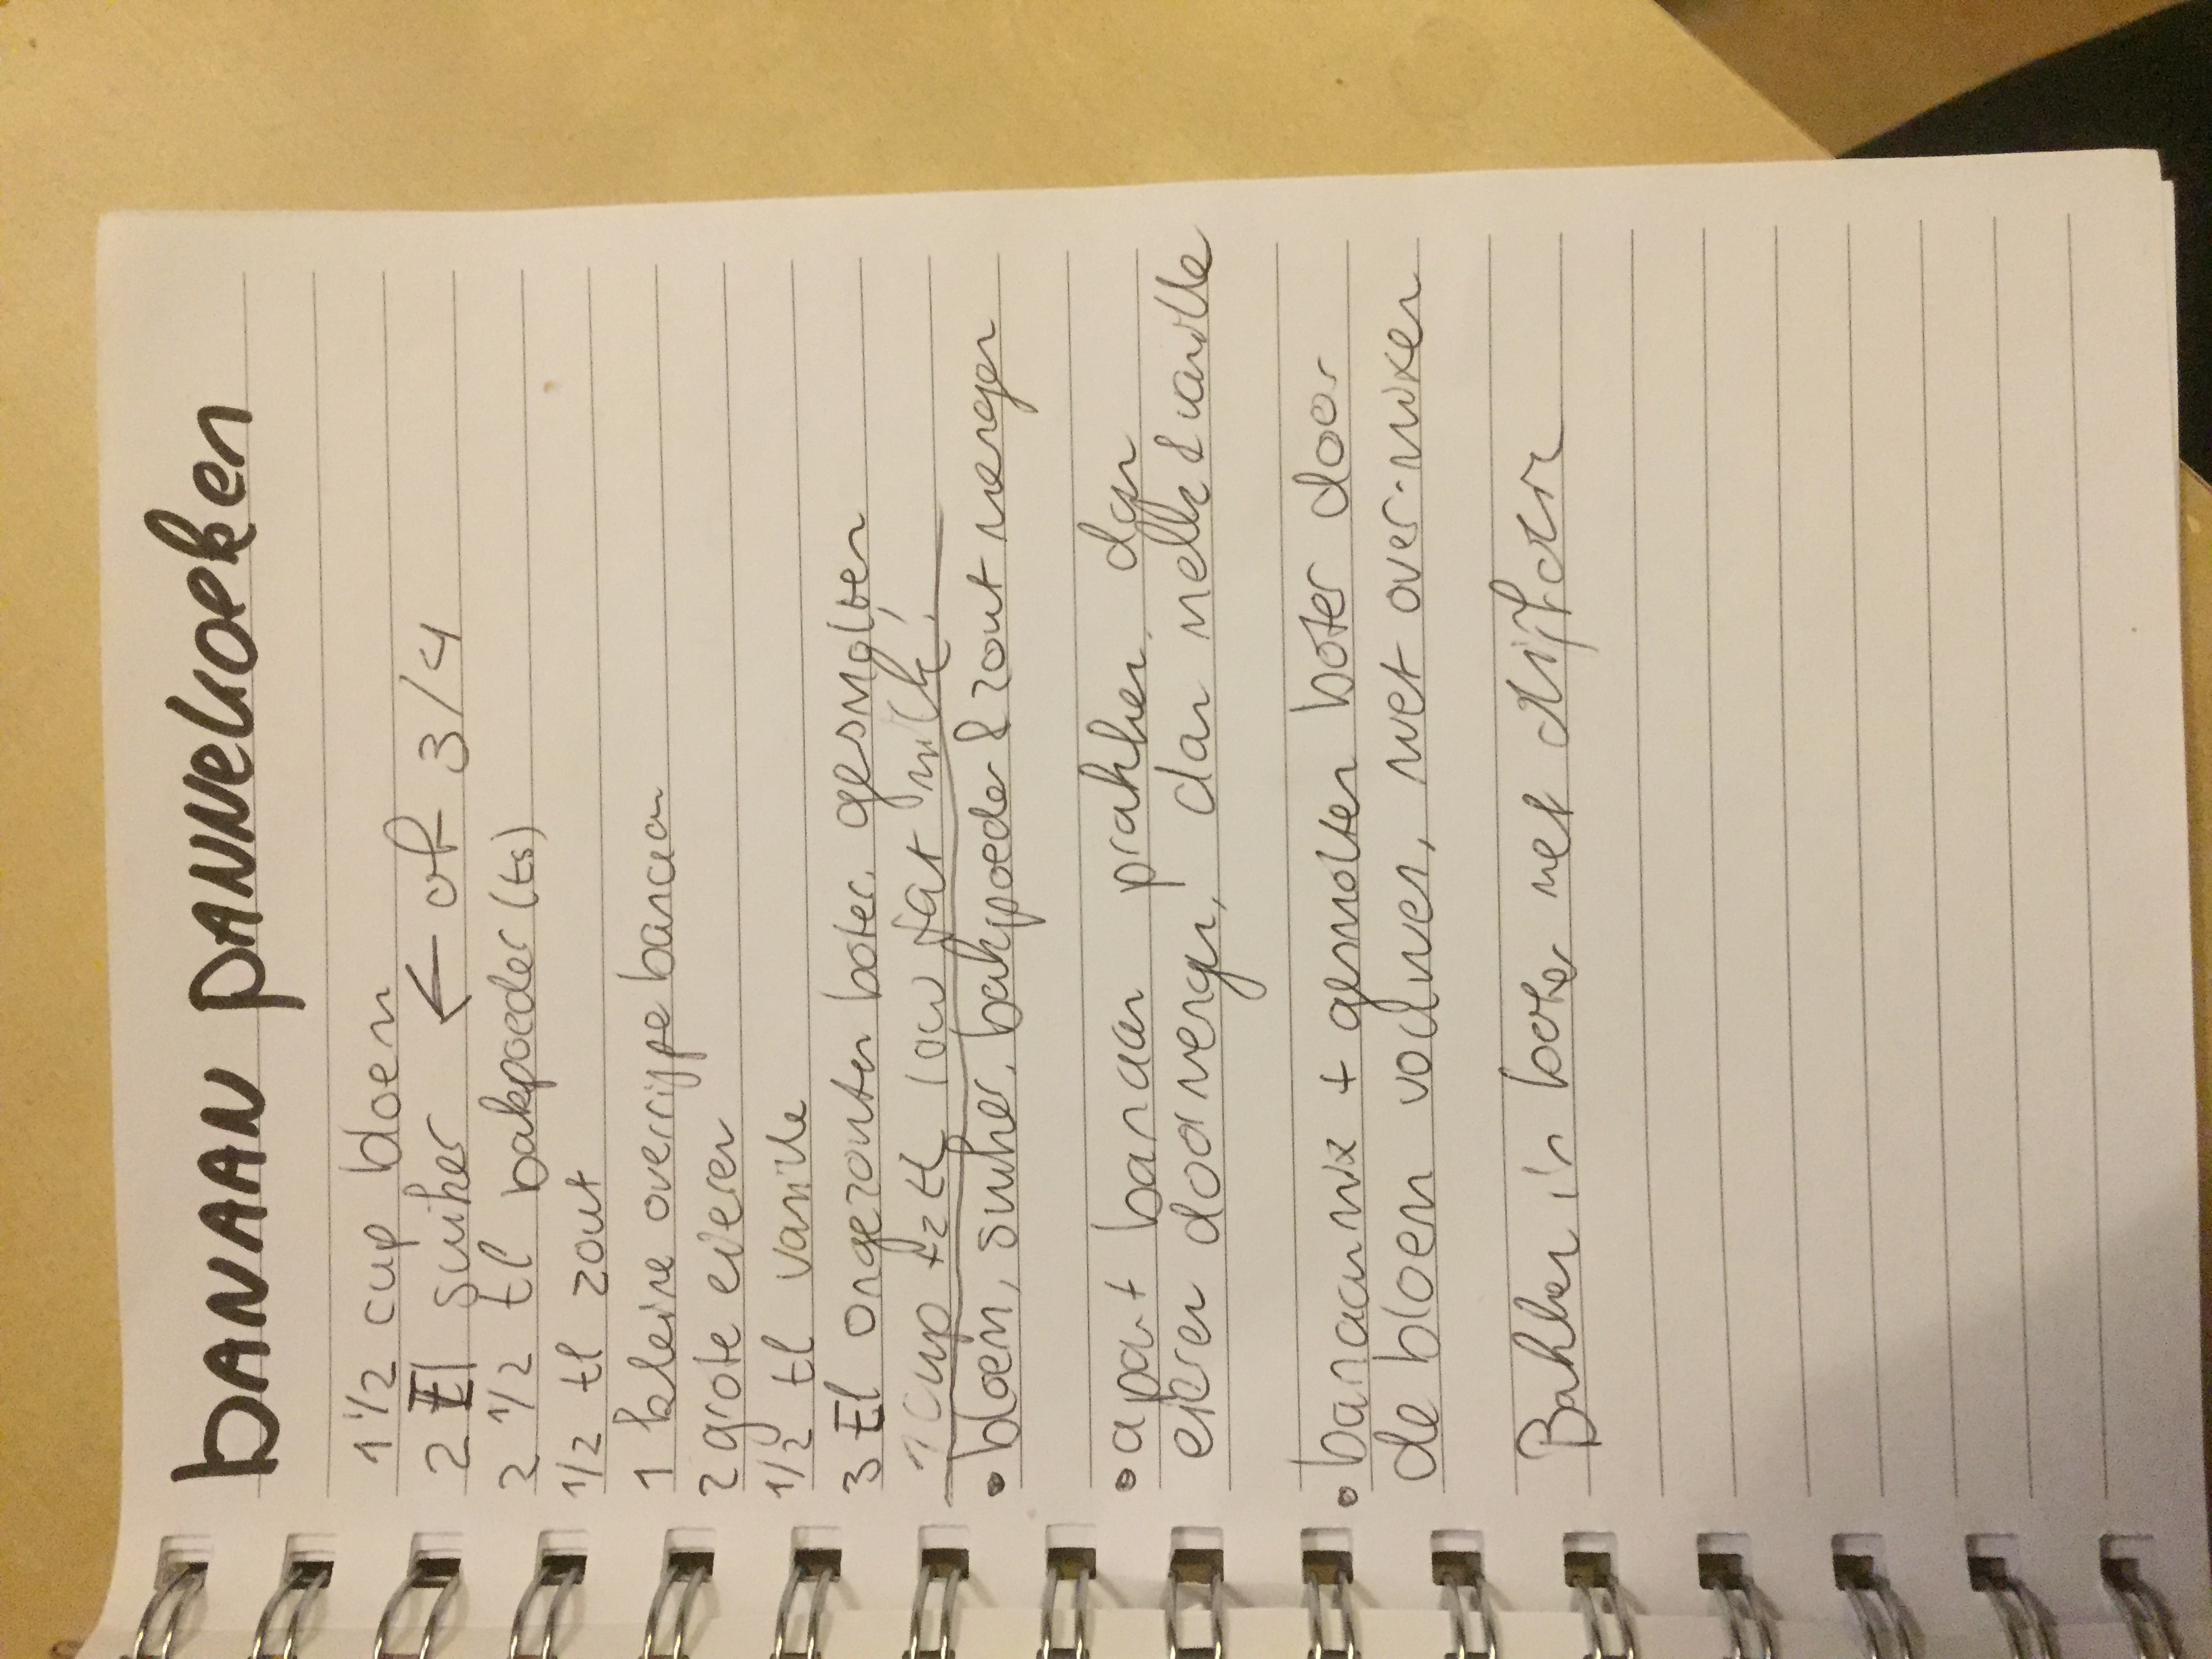 BANAAN PANNEKOEKEN
1 1/2 cup bloem
2 El suiker ← of 3/4
2 1/2 tl bakpoeder (ts)
1/2 tl zout
1 kleine overrijpe banaan
2 grote eieren
1/2 tl vanille
3 El ongezouten boter, gesmolten
1 cup +2 tl low fat milk!
• bloem, suiker, bakpoeder & zout mengen
• apart banaan prakken, dan
eieren doormengen, dan melk & vanille
• banaanmix + gesmolten boter door
de bloem vouwen, niet over-mixen
Bakken in boter met olijfolie